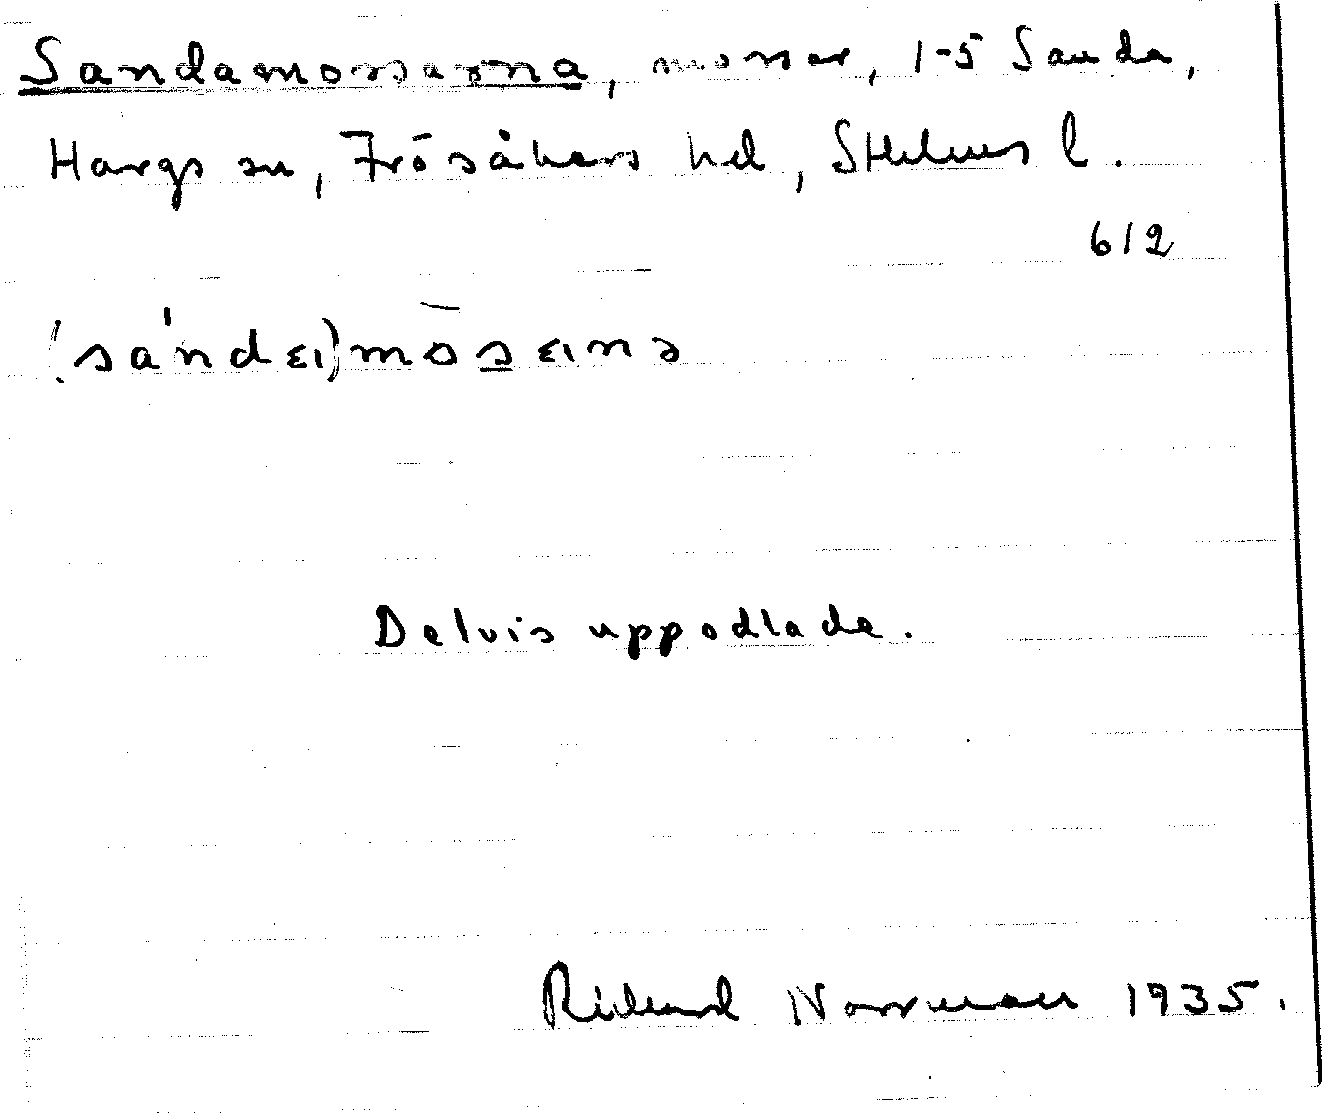 Sandamossarna, mossar, 1-5 Sanda,
Hargs sn, Frösåkers hd, Sthlms l.
612
(sa'ndɛı)mōsɛınə
Delvis uppodlade.
Rickard Norrman 1935.